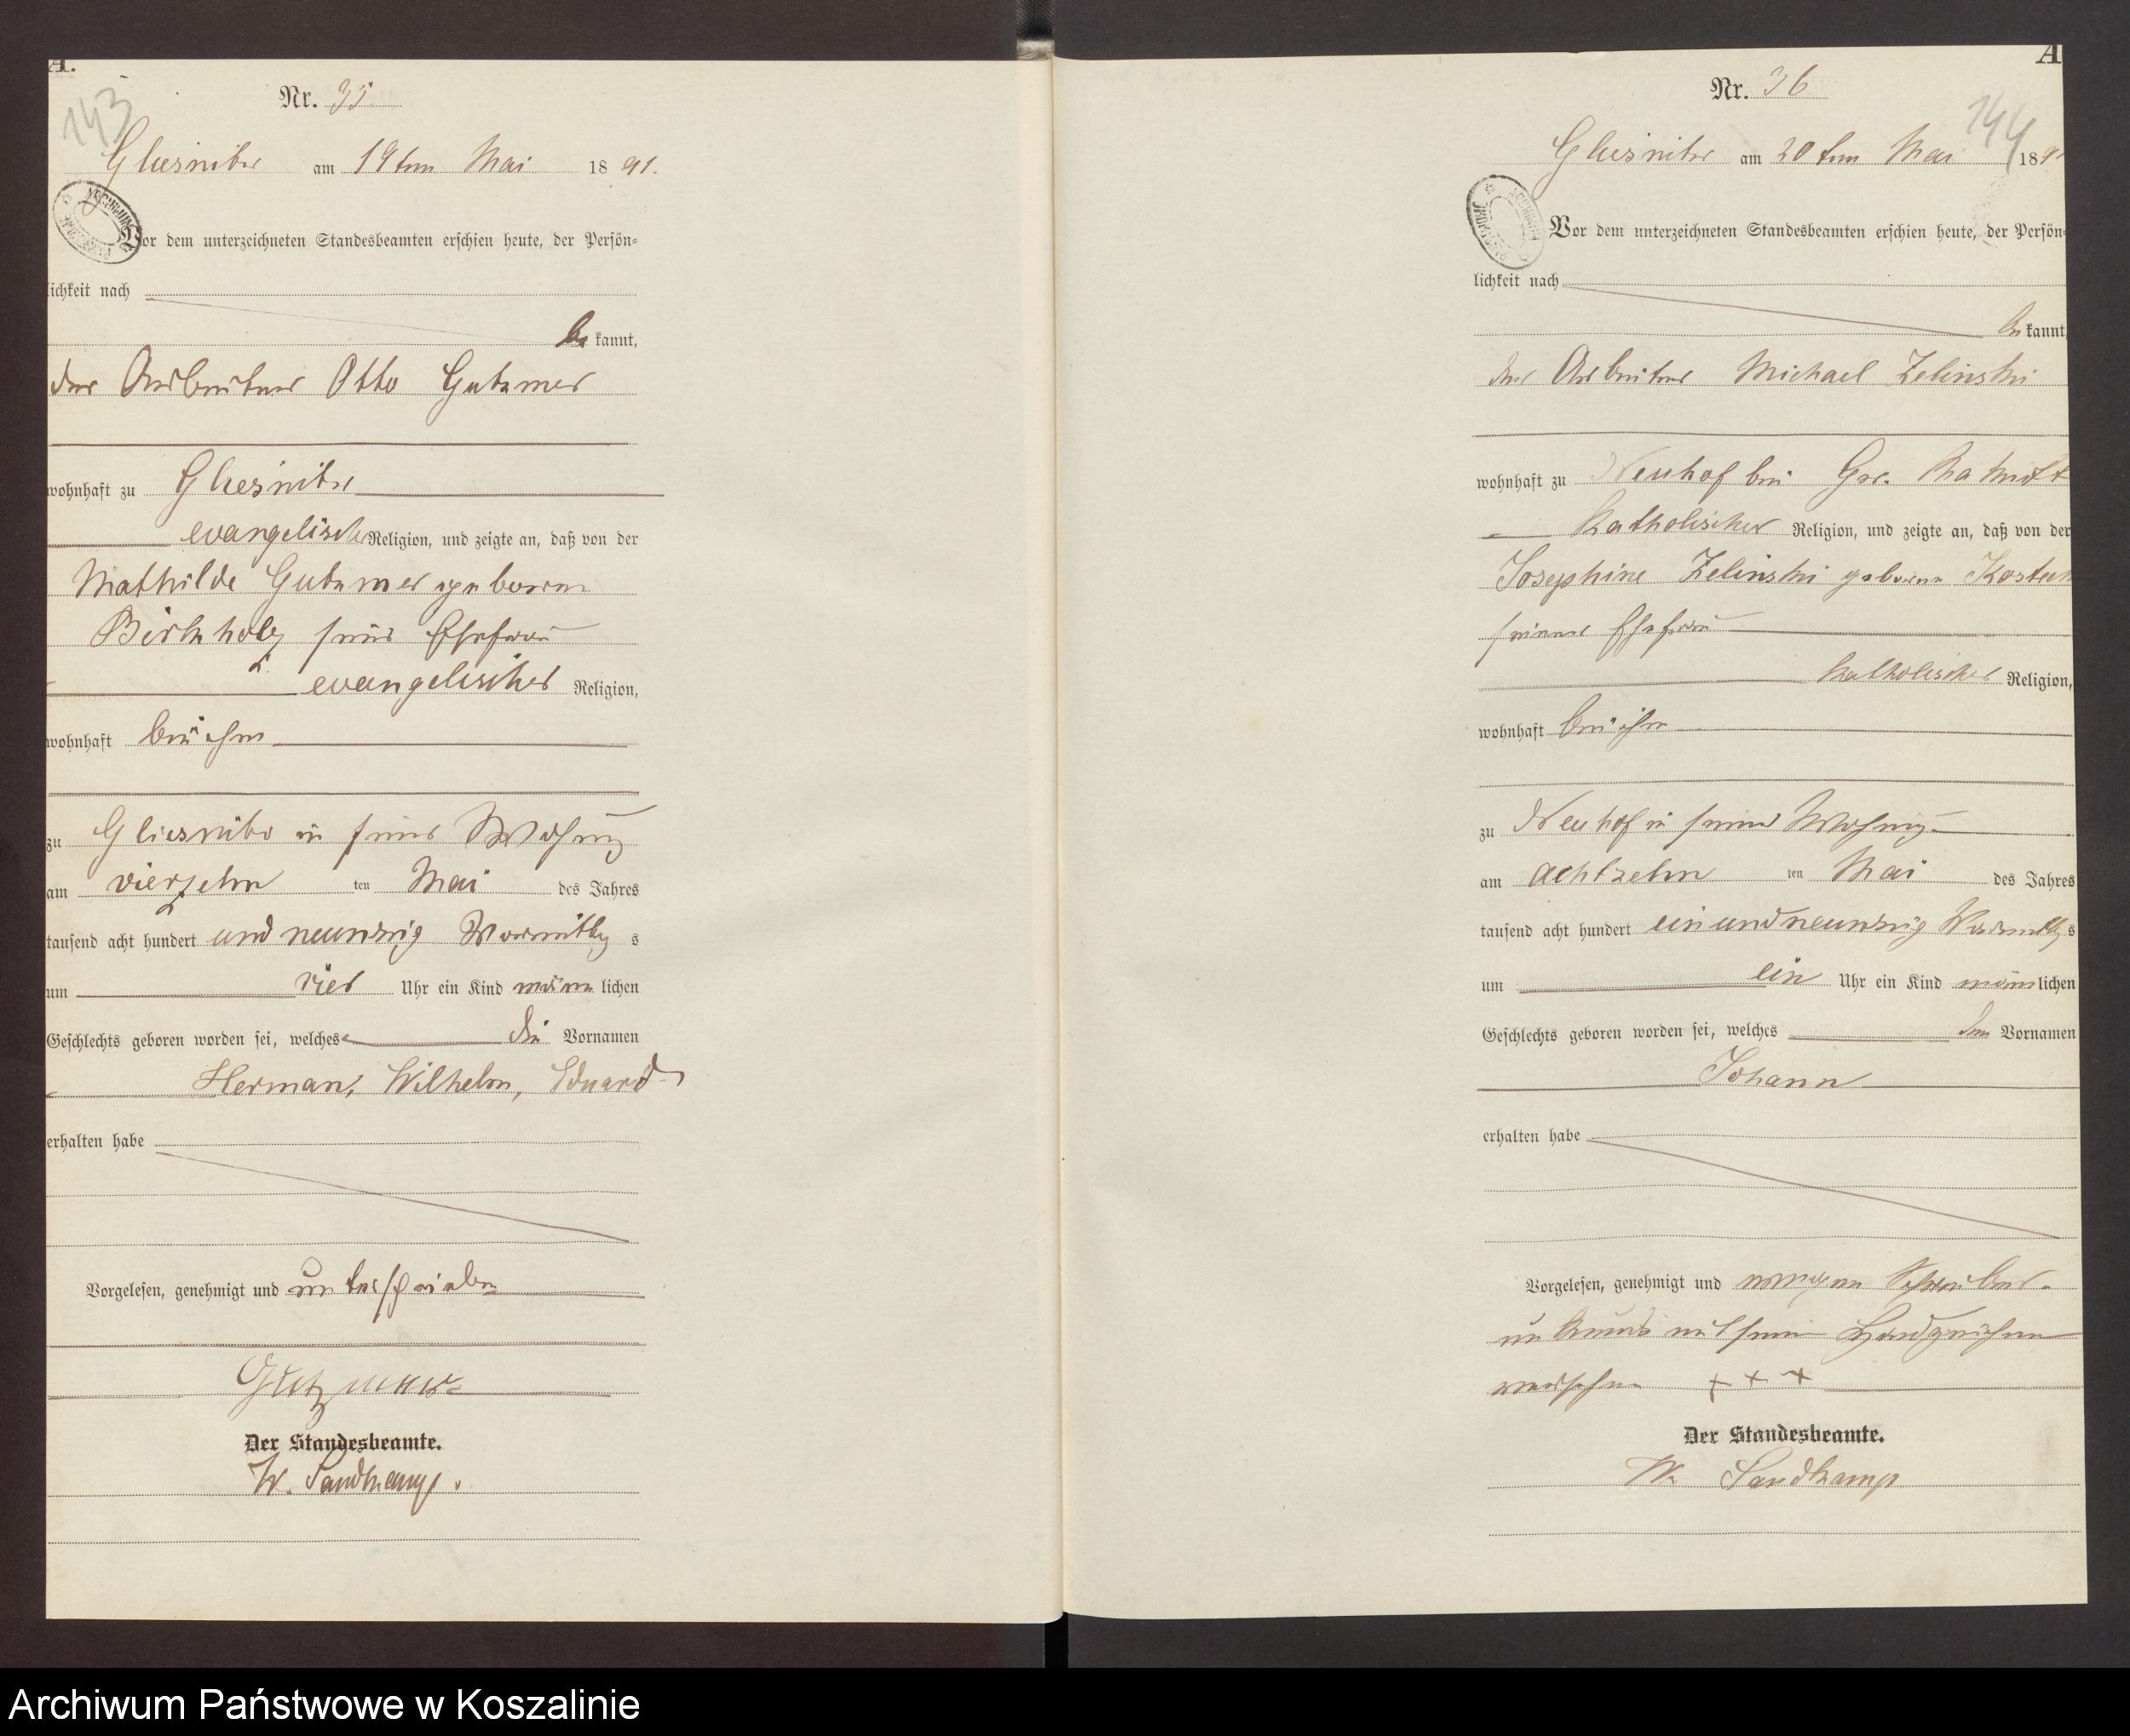 A.
143
Nr. 35
Gliesnitz am 19ten Mai 1891.
Vor dem unterzeichneten Standesbeamten erschien heute, der Persön=
lichkeit nach
be kannt,
der Arbeiter Otto Gutzmer
wohnhaft zu Gliesnitz
evangelischer Religion, und zeigte an, daß von der
Mathilde Gutzmer geboren
Birkholz seine Ehefrau
evangelischer Religion,
wohnhaft bei ihm
zu Gliesnitz in seiner Wohnung
am vierzehn ten Mai des Jahres
tausend acht hundert und neunzig Vormittag s
um vier Uhr ein Kind männ lichen
Geschlechts geboren worden sei, welches die Vornamen
Herman, Wilhelm, Eduard
erhalten habe
Vorgelesen, genehmigt und unterschrieben
Gutzmer
Der Standesbeamte.
W. Sandkamp.
A
144
Nr. 36
Gliesnitz am 20ten Mai 189
Vor dem unterzeichneten Standesbeamten erschien heute, der Persön=
lichkeit nach
be kannt,
der Arbeiter Michael Zelinski
wohnhaft zu Neuhof bei Gr.
Katholischer Religion, und zeigte an, daß von der
Josephine Zelinski geborene
seiner Ehefrau
Katholischer Religion,
wohnhaft bei ihm
zu Neuhof in seiner Wohnung
am achtzehn ten Mai des Jahres
tausend acht hundert ein und neunzig Vormittag s
um ein Uhr ein Kind männ lichen
Geschlechts geboren worden sei, welches den Vornamen
Johann
erhalten habe
Vorgelesen, genehmigt und wegen Schreibens
unkunde mit seinem Handzeichen
versehen + + +
Der Standesbeamte.
W. Sandkamp
Archiwum Państwowe w Koszalinie